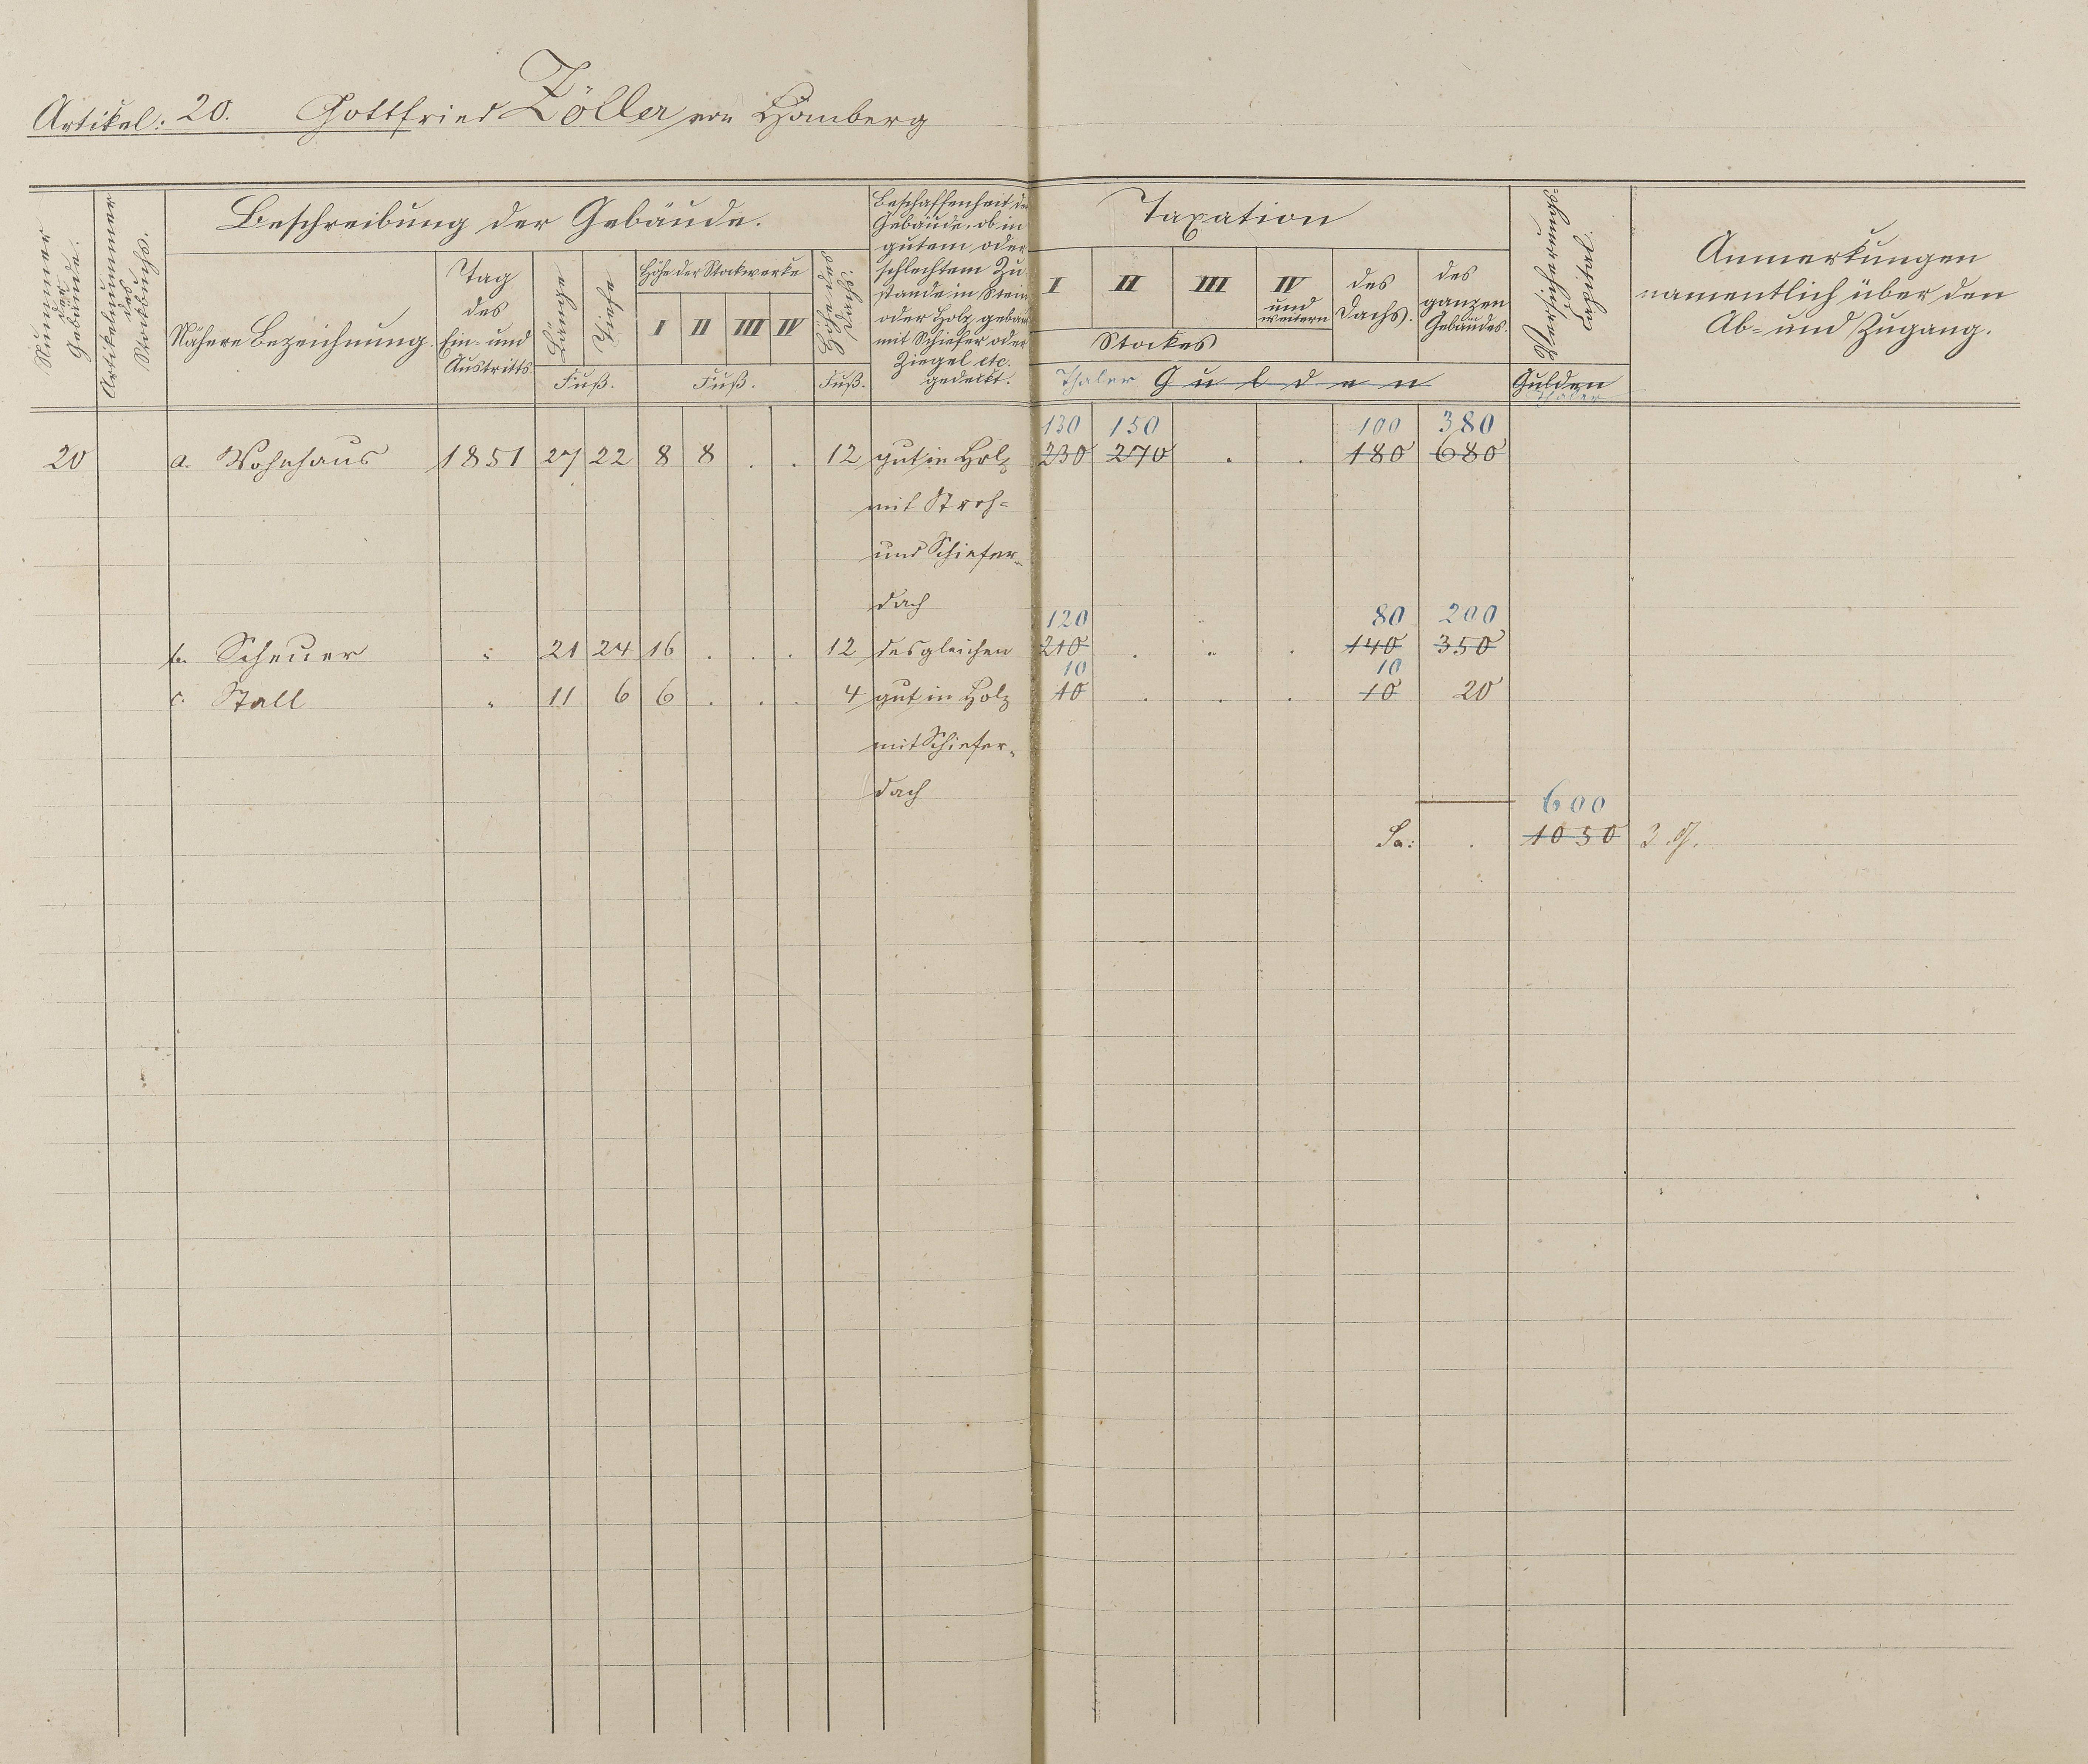 Artikel: 20. Gottfried Zöller von Homberg
Nummer der Gebäude.
Artikelnummer des Stockbuchs.
Beschreibung der Gebäude.
Nähere Bezeichnung.
Tag des Ein- und Austritts.
Länge
Tiefe
Fuß.
Höhe der Stockwerke
I II III IV
Fuß.
Höhe des Dachs.
Fuß.
Beschaffenheit der
Gebäude, ob in
gutem oder
schlechtem Zu-
stande in Stein
oder Holz gebaut
mit Schiefer oder
Ziegel etc.
gedeckt.
Taxation
I II III IV und weitern
Stockes
des Dachs.
des ganzen Gebäudes.
Thaler Gulden
Versicherungs-Capital.
Gulden
Thaler
Anmerkungen
namentlich über den
Ab- und Zugang.
130 150 100 380
20 a. Wohnhaus 1851 27 22 8 8 . . 12 gut in Holz 230 270 . . 180 680
mit Stroh-
und Schiefer-
dach
120 80 200
b. Scheuer " 21 24 16 . . . 12 desgleichen 210 . " . 140 350
10 10
c. Stall " 11 6 6 . . . 4 gut in Holz 10 . . . 10 20
mit Schiefer-
dach
600
Sa: . 1050